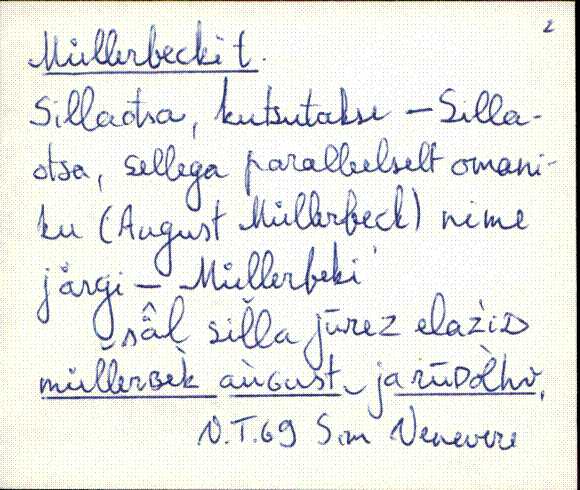 2
Müllerbecki t.
Sillaotsa, kutsutakse – Silla-
otsa, sellega paralleelselt omani-
ku (August Müllerbeck) nime
järgi – Müllerbeki
säl silla jūrez elaziD
müllerBek àuGust ja rūDòlhv,
V.T.69 Sim Venevere